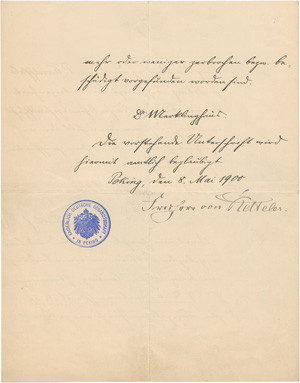 mehr oder weniger zerbrochen bezw. be-
schädigt vorgefunden worden sind.
Dr Merklinghaus.
Die vorstehende Unterschrift wird
hiermit amtlich beglaubigt.
Peking, den 8. Mai 1900
Freiherr von Ketteler.
KAISERLICH DEUTSCHE GESANDTSCHAFT
IN PEKING